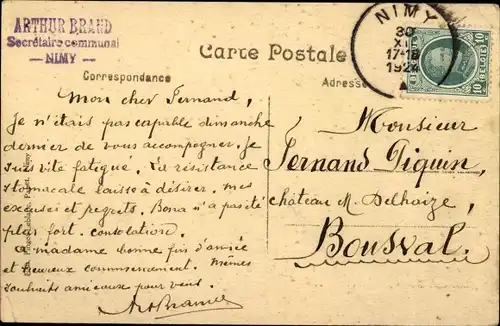 ARTHUR BRAND
Secrétaire communal
— NIMY —
NIMY
30
XI
17-18
1924
BELGIE
10 10
Carte Postale
Correspondance
Adresse
Mon cher Fernand,
Je n'étais pas capable dimanche
dernier de vous accompagner. Je
suis vite fatigué. La résistance
stomacale laisse à désirer. Mes
excuses et regrets. Bona n'a pas été
plus fort. Consolation.
à madame bonne fin d'année
et heureux commencement. Mêmes
souhaits amicaux pour vous.
Art Brand
Monsieur
Fernand Piquin,
château M. Delhaize,
Bousval.